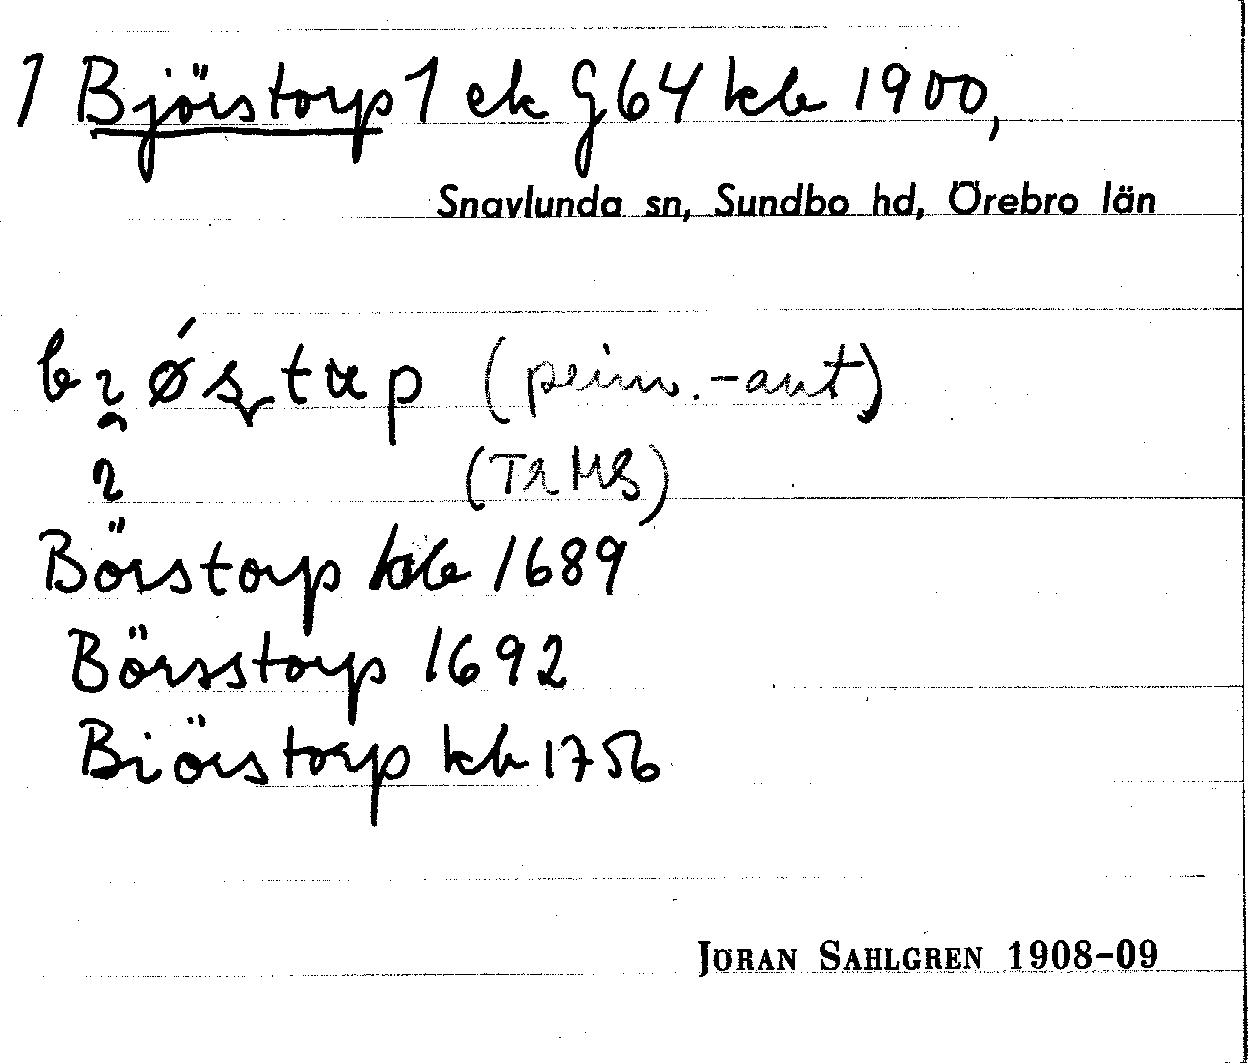 1 Björstorp 1 ek G64 kb 1900,
Snavlunda sn, Sundbo hd, Örebro län
(prim.-ant)
(TRMS)
Börstorp kb 1689
Börsstorp 1692
Biörstorp kb 1756
JÖRAN SAHLGREN 1908-09